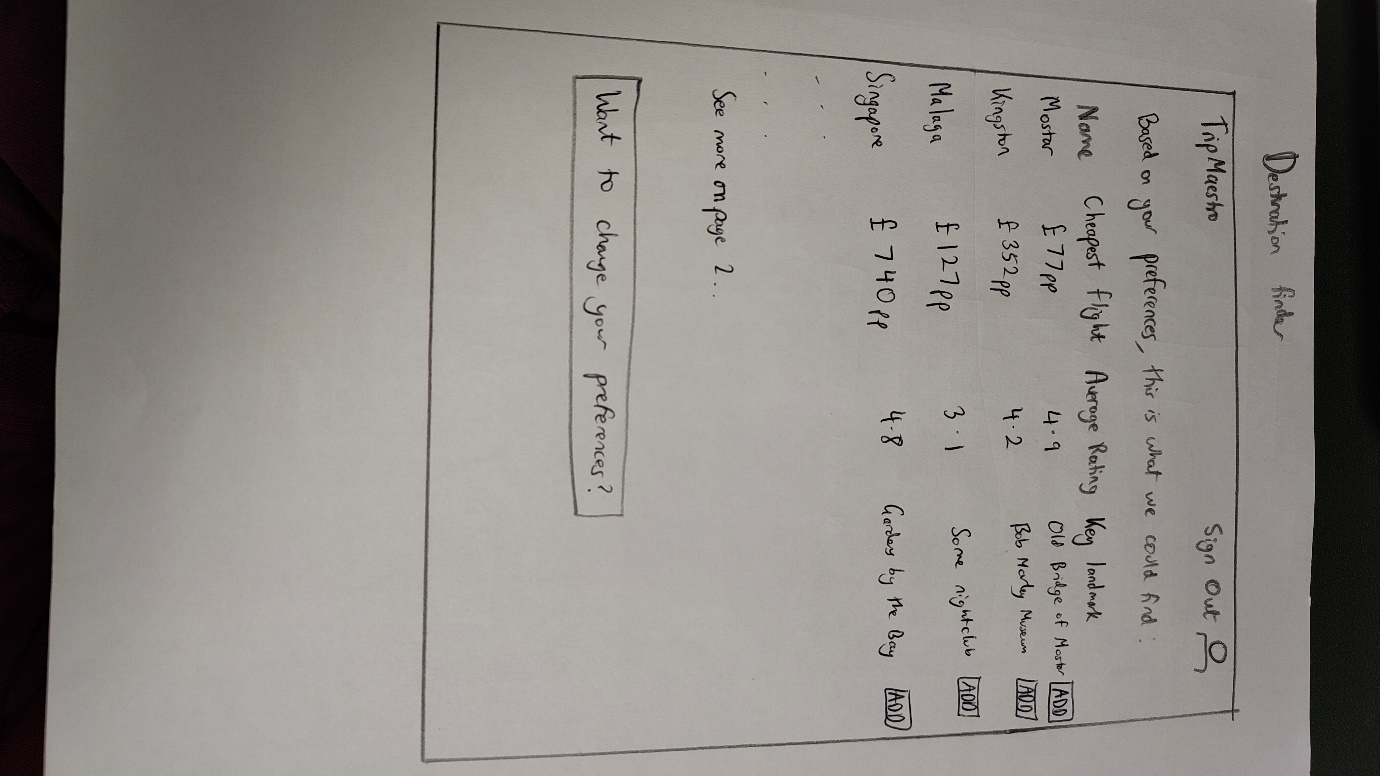 Destination finder
TripMaestro Sign Out
Based on your preferences, this is what we could find:
Name Cheapest flight Average Rating Key landmark
Mostar £77pp 4.9 Old Bridge of Mostar ADD
Kingston £352pp 4.2 Bob Marley Museum ADD
Malaga £127pp 3.1 Some nightclub ADD
Singapore £740pp 4.8 Gardens by the Bay ADD
See more on page 2...
Want to change your preferences?